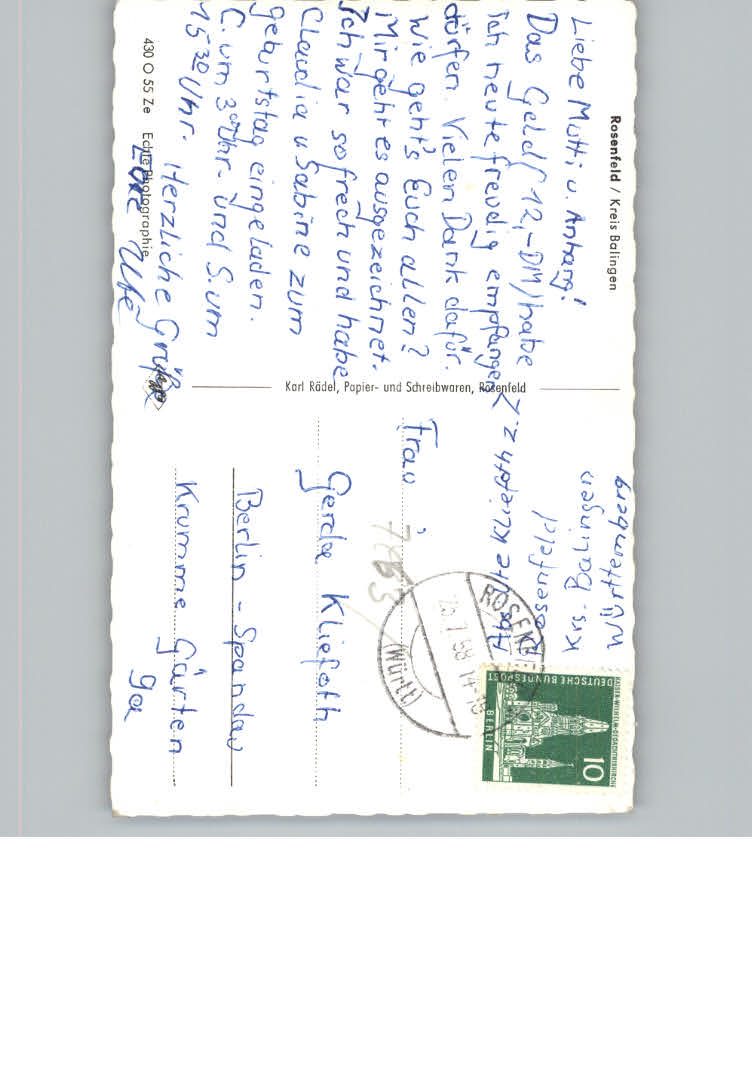 Rosenfeld / Kreis Balingen
Liebe Mutti u. Anhang!
Das Geld (12,-DM) habe
ich heute freudig empfangen
dürfen. Vielen Dank dafür.
Wie geht's Euch allen?
Mir geht es ausgezeichnet.
Ich war so frech und habe
Claudia u Sabine zum
geburtstag eingeladen.
C. um 3°° Uhr. und S. um
15³⁰ Uhr. Herzliche Grüße
Eure Ute
430 O 55 Ze Echte Photographie
Karl Rädel, Papier- und Schreibwaren, Rosenfeld
Ute Kliefoth z.Z.
Rosenfeld
Krs. Balingen
Württemberg
ROSENFELD
(Württ)
25.7.58 14-15
KAISER-WILHELM-GEDÄCHTNISKIRCHE
DEUTSCHE BUNDESPOST
BERLIN
10
Frau
Gerda Kliefoth
Berlin - Spandau
Krumme Gärten
9a